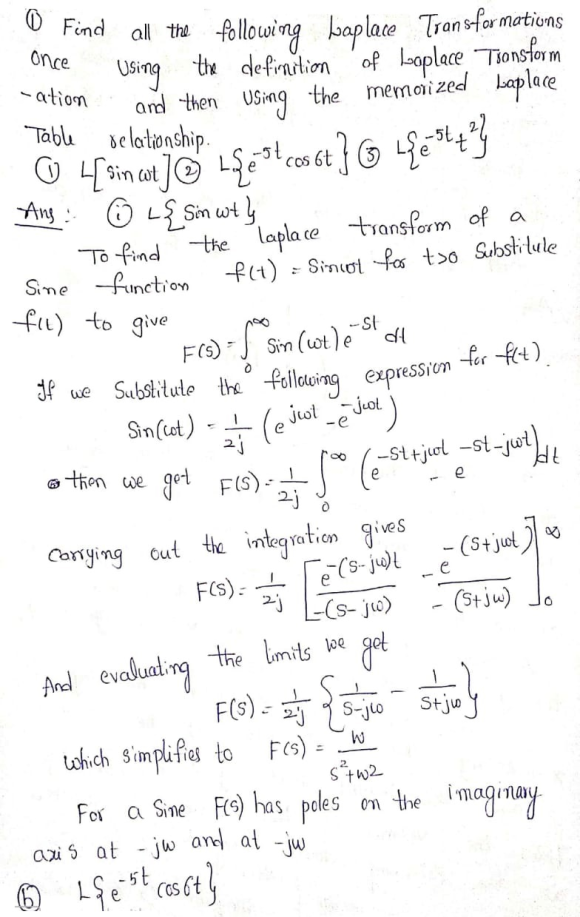 ① Find all the following Laplace Transformations
Once Using the definition of Laplace Transform
-ation and then Using the memorized Laplace
Table relationship.
① L[sin ωt] ② L{e^-5t cos 6t} ③ L{e^-5t t^2}
Ans : ⓘ L{Sin wt}
To find the laplace transform of a
Sine function f(t) = Sinωt for t>0 Substitute
f(t) to give
F(S) = ∫_0^∞ Sin(ωt) e^-St dt
If we Substitute the following expression for f(t).
Sin(ωt) = 1/2j (e^jωt - e^-jωt)
then we get F(S) = 1/2j ∫_0^∞ (e^-St+jωt - e^-st-jωt) dt
Carrying out the integration gives
F(S) = 1/2j [e^-(S-jω)t / -(S-jω) - e^-(S+jωt) / -(S+jω)]_0^∞
And evaluating the limits we get
F(S) = 1/2j {1/S-jω - 1/S+jω}
which simplifies to F(S) = W/S^2+w2
For a Sine F(S) has poles on the imaginary
axis at -jw and at -jw
ⓑ L{e^-5t cos 6t}